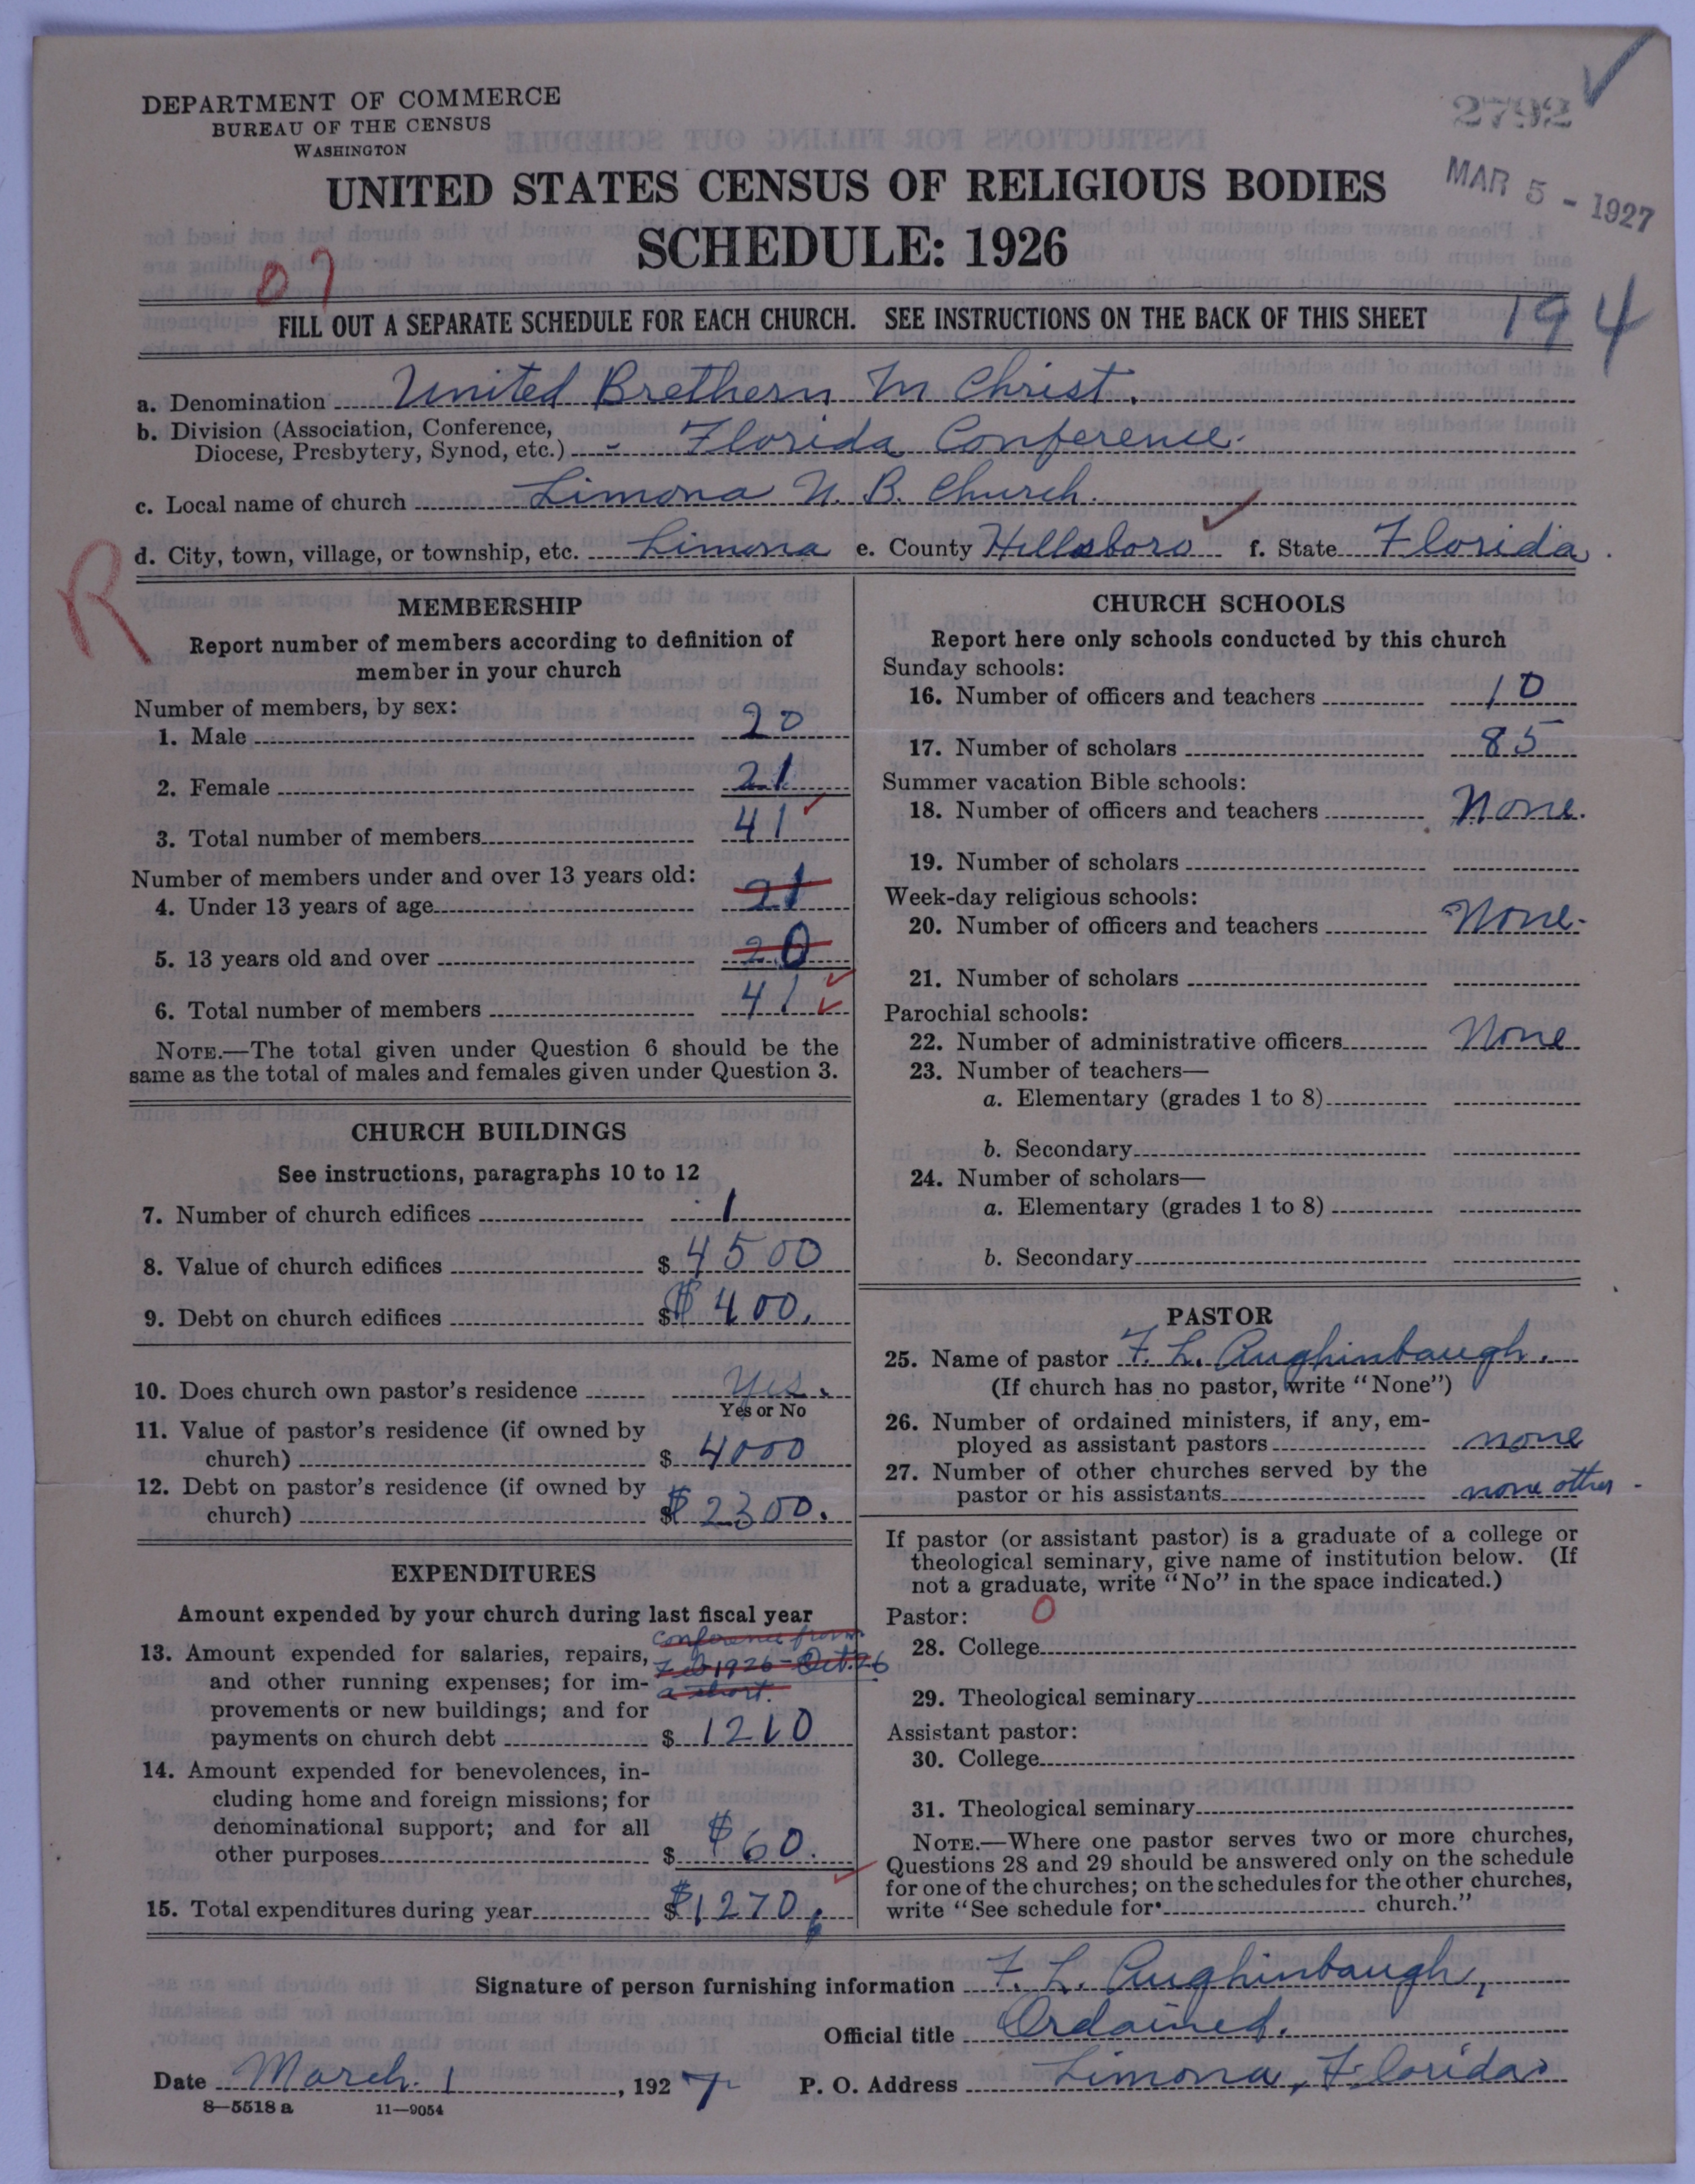 DEPARTMENT OF COMMERCE
BUREAU OF THE CENSUS
WASHINGTON
2792
MAR 5 - 1927
UNITED STATES CENSUS OF RELIGIOUS BODIES
SCHEDULE: 1926
07
FILL OUT A SEPARATE SCHEDULE FOR EACH CHURCH. SEE INSTRUCTIONS ON THE BACK OF THIS SHEET
194
a. Denomination United Brethern In Christ.
b. Division (Association, Conference,
Diocese, Presbytery, Synod, etc.) - Florida Conference.
c. Local name of church Limona U. B. Church.
d. City, town, village, or township, etc. Limona e. County Hillsboro f. State Florida.
R
MEMBERSHIP
Report number of members according to definition of
member in your church
Number of members, by sex:
1. Male 20
2. Female 21
3. Total number of members 41
Number of members under and over 13 years old:
4. Under 13 years of age 21
5. 13 years old and over 20
6. Total number of members 41
NOTE.—The total given under Question 6 should be the
same as the total of males and females given under Question 3.
CHURCH BUILDINGS
See instructions, paragraphs 10 to 12
7. Number of church edifices 1
8. Value of church edifices $ 4500
9. Debt on church edifices $ $ 400.
10. Does church own pastor's residence Yes.
Yes or No
11. Value of pastor's residence (if owned by
church) $ 4000
12. Debt on pastor's residence (if owned by
church) $ $ 2300.
EXPENDITURES
Amount expended by your church during last fiscal year
13. Amount expended for salaries, repairs,
and other running expenses; for im-
provements or new buildings; and for
payments on church debt $ 1210
Conference from
Feb 1926 - Oct. 26
a short.
14. Amount expended for benevolences, in-
cluding home and foreign missions; for
denominational support; and for all
other purposes $ $ 60.
15. Total expenditures during year $ $1270.
CHURCH SCHOOLS
Report here only schools conducted by this church
Sunday schools:
16. Number of officers and teachers 10
17. Number of scholars 85
Summer vacation Bible schools:
18. Number of officers and teachers None.
19. Number of scholars
Week-day religious schools:
20. Number of officers and teachers None.
21. Number of scholars
Parochial schools:
22. Number of administrative officers None
23. Number of teachers—
a. Elementary (grades 1 to 8)
b. Secondary
24. Number of scholars—
a. Elementary (grades 1 to 8)
b. Secondary
PASTOR
25. Name of pastor F. L. Aughinbaugh.
(If church has no pastor, write "None")
26. Number of ordained ministers, if any, em-
ployed as assistant pastors none
27. Number of other churches served by the
pastor or his assistants none other -
If pastor (or assistant pastor) is a graduate of a college or
theological seminary, give name of institution below. (If
not a graduate, write "No" in the space indicated.)
Pastor: 0
28. College
29. Theological seminary
Assistant pastor:
30. College
31. Theological seminary
NOTE.—Where one pastor serves two or more churches,
Questions 28 and 29 should be answered only on the schedule
for one of the churches; on the schedules for the other churches,
write "See schedule for church."
Signature of person furnishing information F. L. Aughinbaugh,
Official title Ordained.
Date March 1, 1927 P. O. Address Limona, Florida
8—5518 a 11—9054